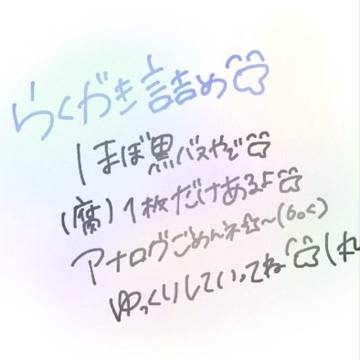 らくがき詰め
↑まぼ黒バスやぞ
(腐)1枚だけあるよ
アナログごめんネ☆〜(6o<)
ゆっくりしていってね(れ